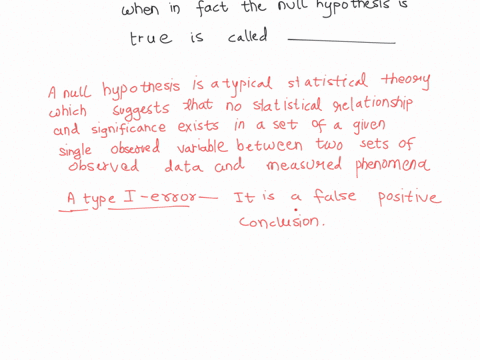 when in fact the null hypothesis is
true is called ________
A null hypothesis is a typical statistical theory
which suggests that no statistical relationship
and significance exists in a set of a given
single observed variable between two sets of
observed data and measured phenomena
A type I-error — It is a false positive
conclusion.